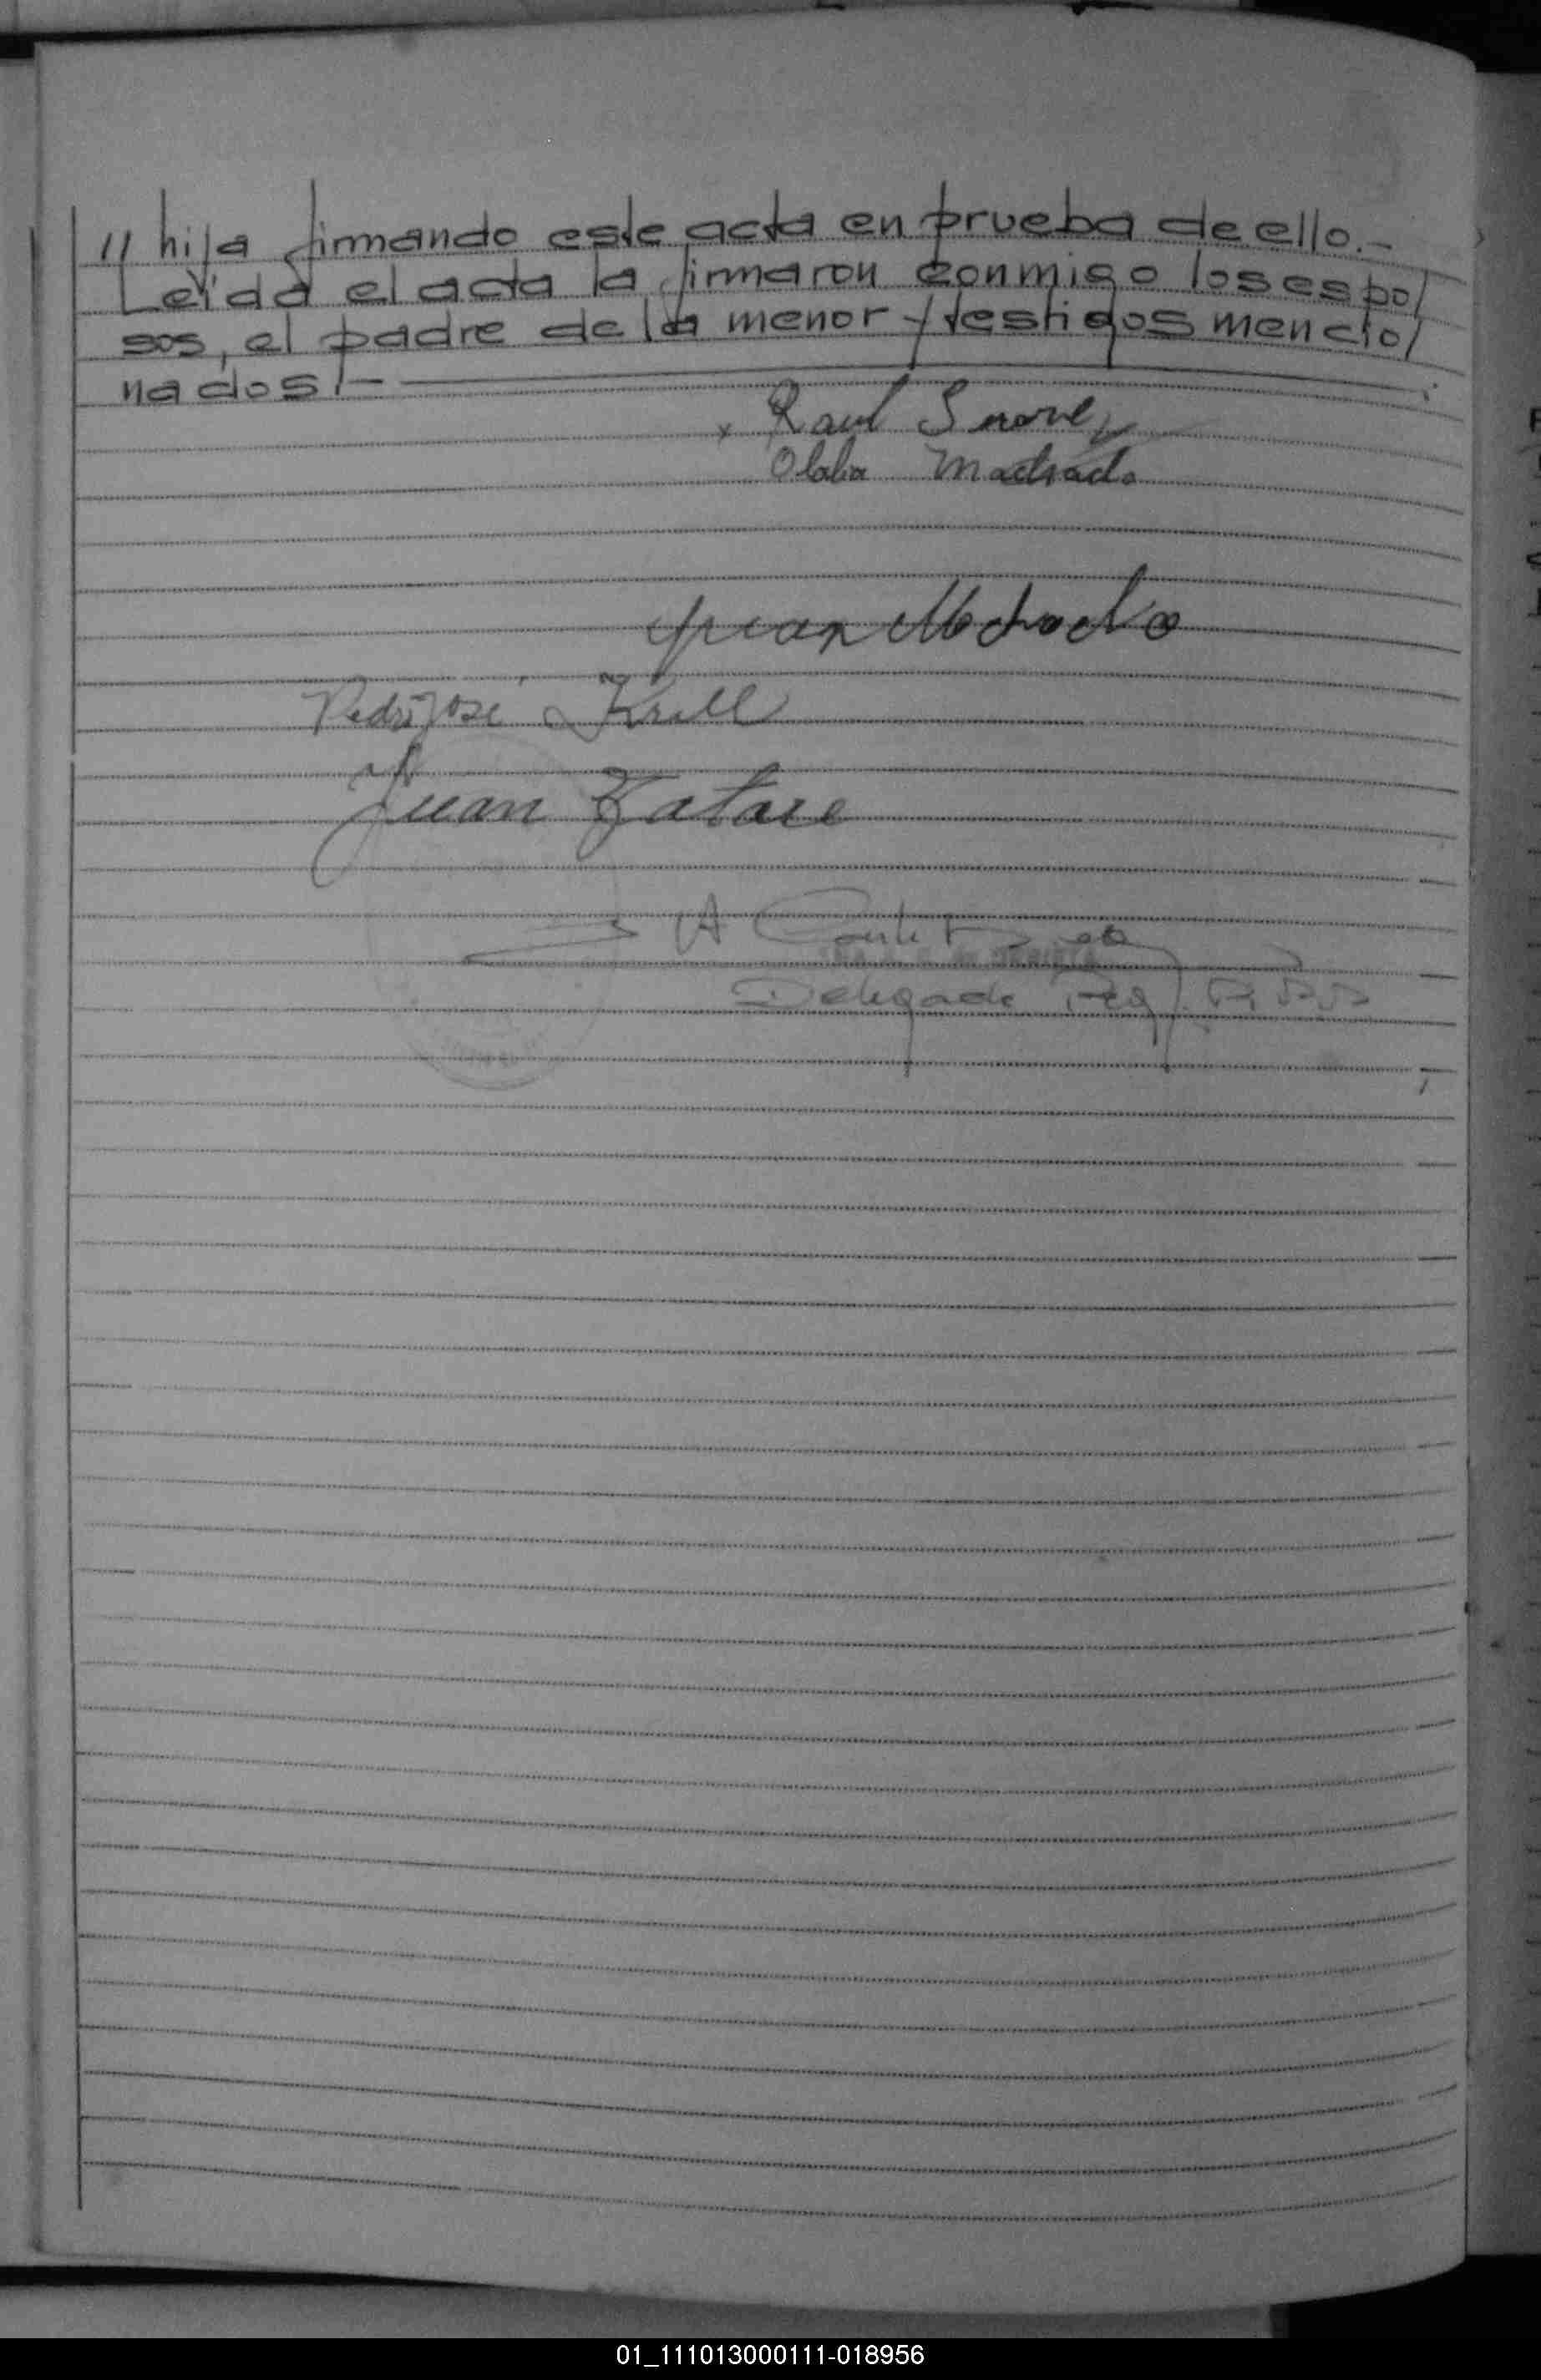 // hija firmando este acta en prueba de ello.-
Leída el acta la firmaron conmigo los espo/
sos, el padre de la menor y testigos mencio/
nados/-
x Raul
Machado
Juan Machado
Pedro José Krill
Juan
A Conte
Delegado
01_111013000111-018956